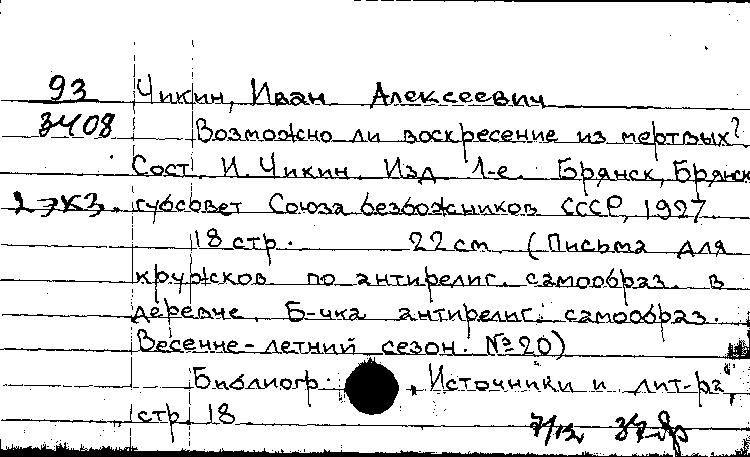 93 Чикин, Иван Алексеевич
3408 Возможно ли воскресение из мертвых?
Сост. И. Чикин. Изд. 1-е. Брянск, Брянск
2 экз. губсовет Союза безбожников СССР, 1927.
18 стр. 22 см. (Письма для
кружков по антирелиг. самообраз. в
деревне. Б-чка антирелиг. самообраз.
Весенне-летний сезон. №20)
Библиогр. , Источники и лит-ра,
стр. 18